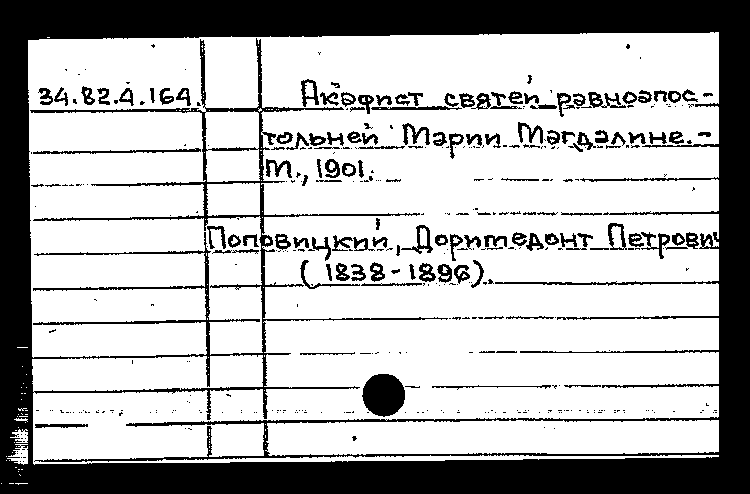 34.82.4.164. Акафист святей равноапос-
тольней Марии Магдалине.-
М., 1901.
Поповицкий, Доримедонт Петрович
(1838-1896).